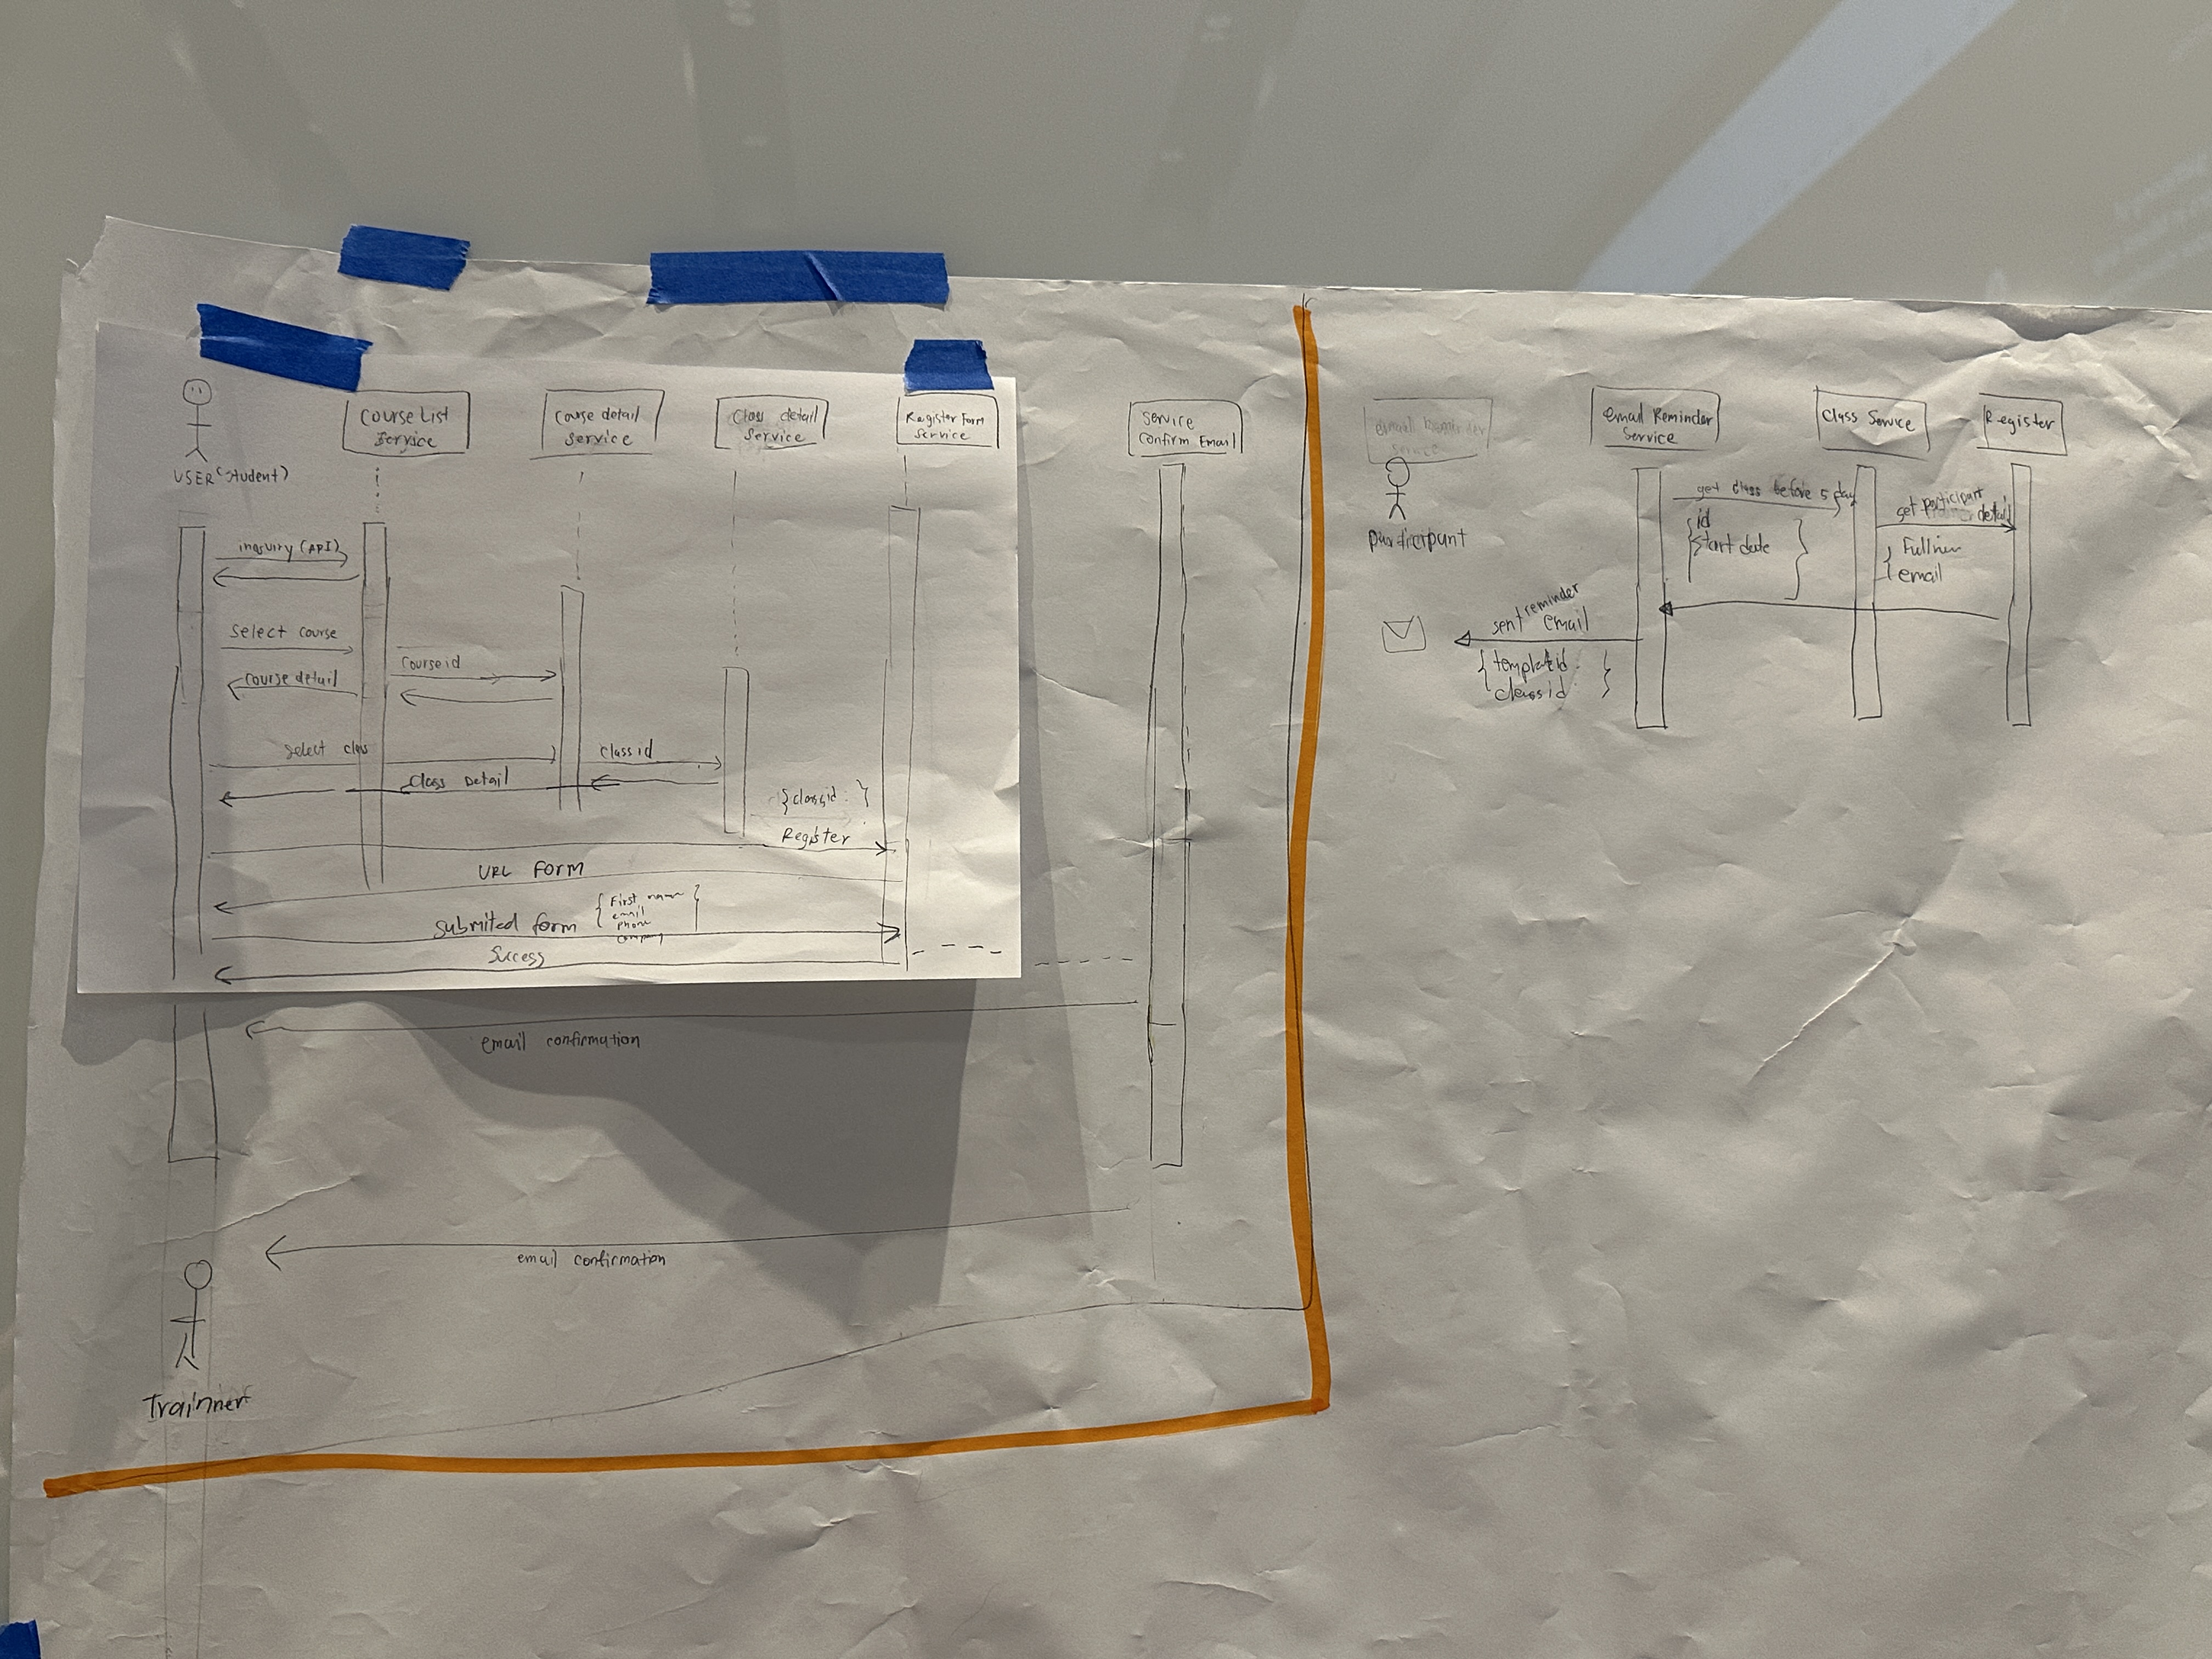 Course List
Service
Course detail
Service
Class detail
Service
Register Form
Service
USER (Student)
Service
Confirm Email
inquiry (API)
Select course
Course id
Course detail
Select class
Class id
Class Detail
{classid : }
Register
URL Form
{ First name
email
phone
company }
Submited form
Success
email confirmation
email confirmation
Trainner
email Reminder
Service
email Reminder
Service
Class Service
Register
participant
get class before 5 day
{ id
start date }
get participant
detail
{ Fullname
email
sent reminder
email
{ templateid :
classid }